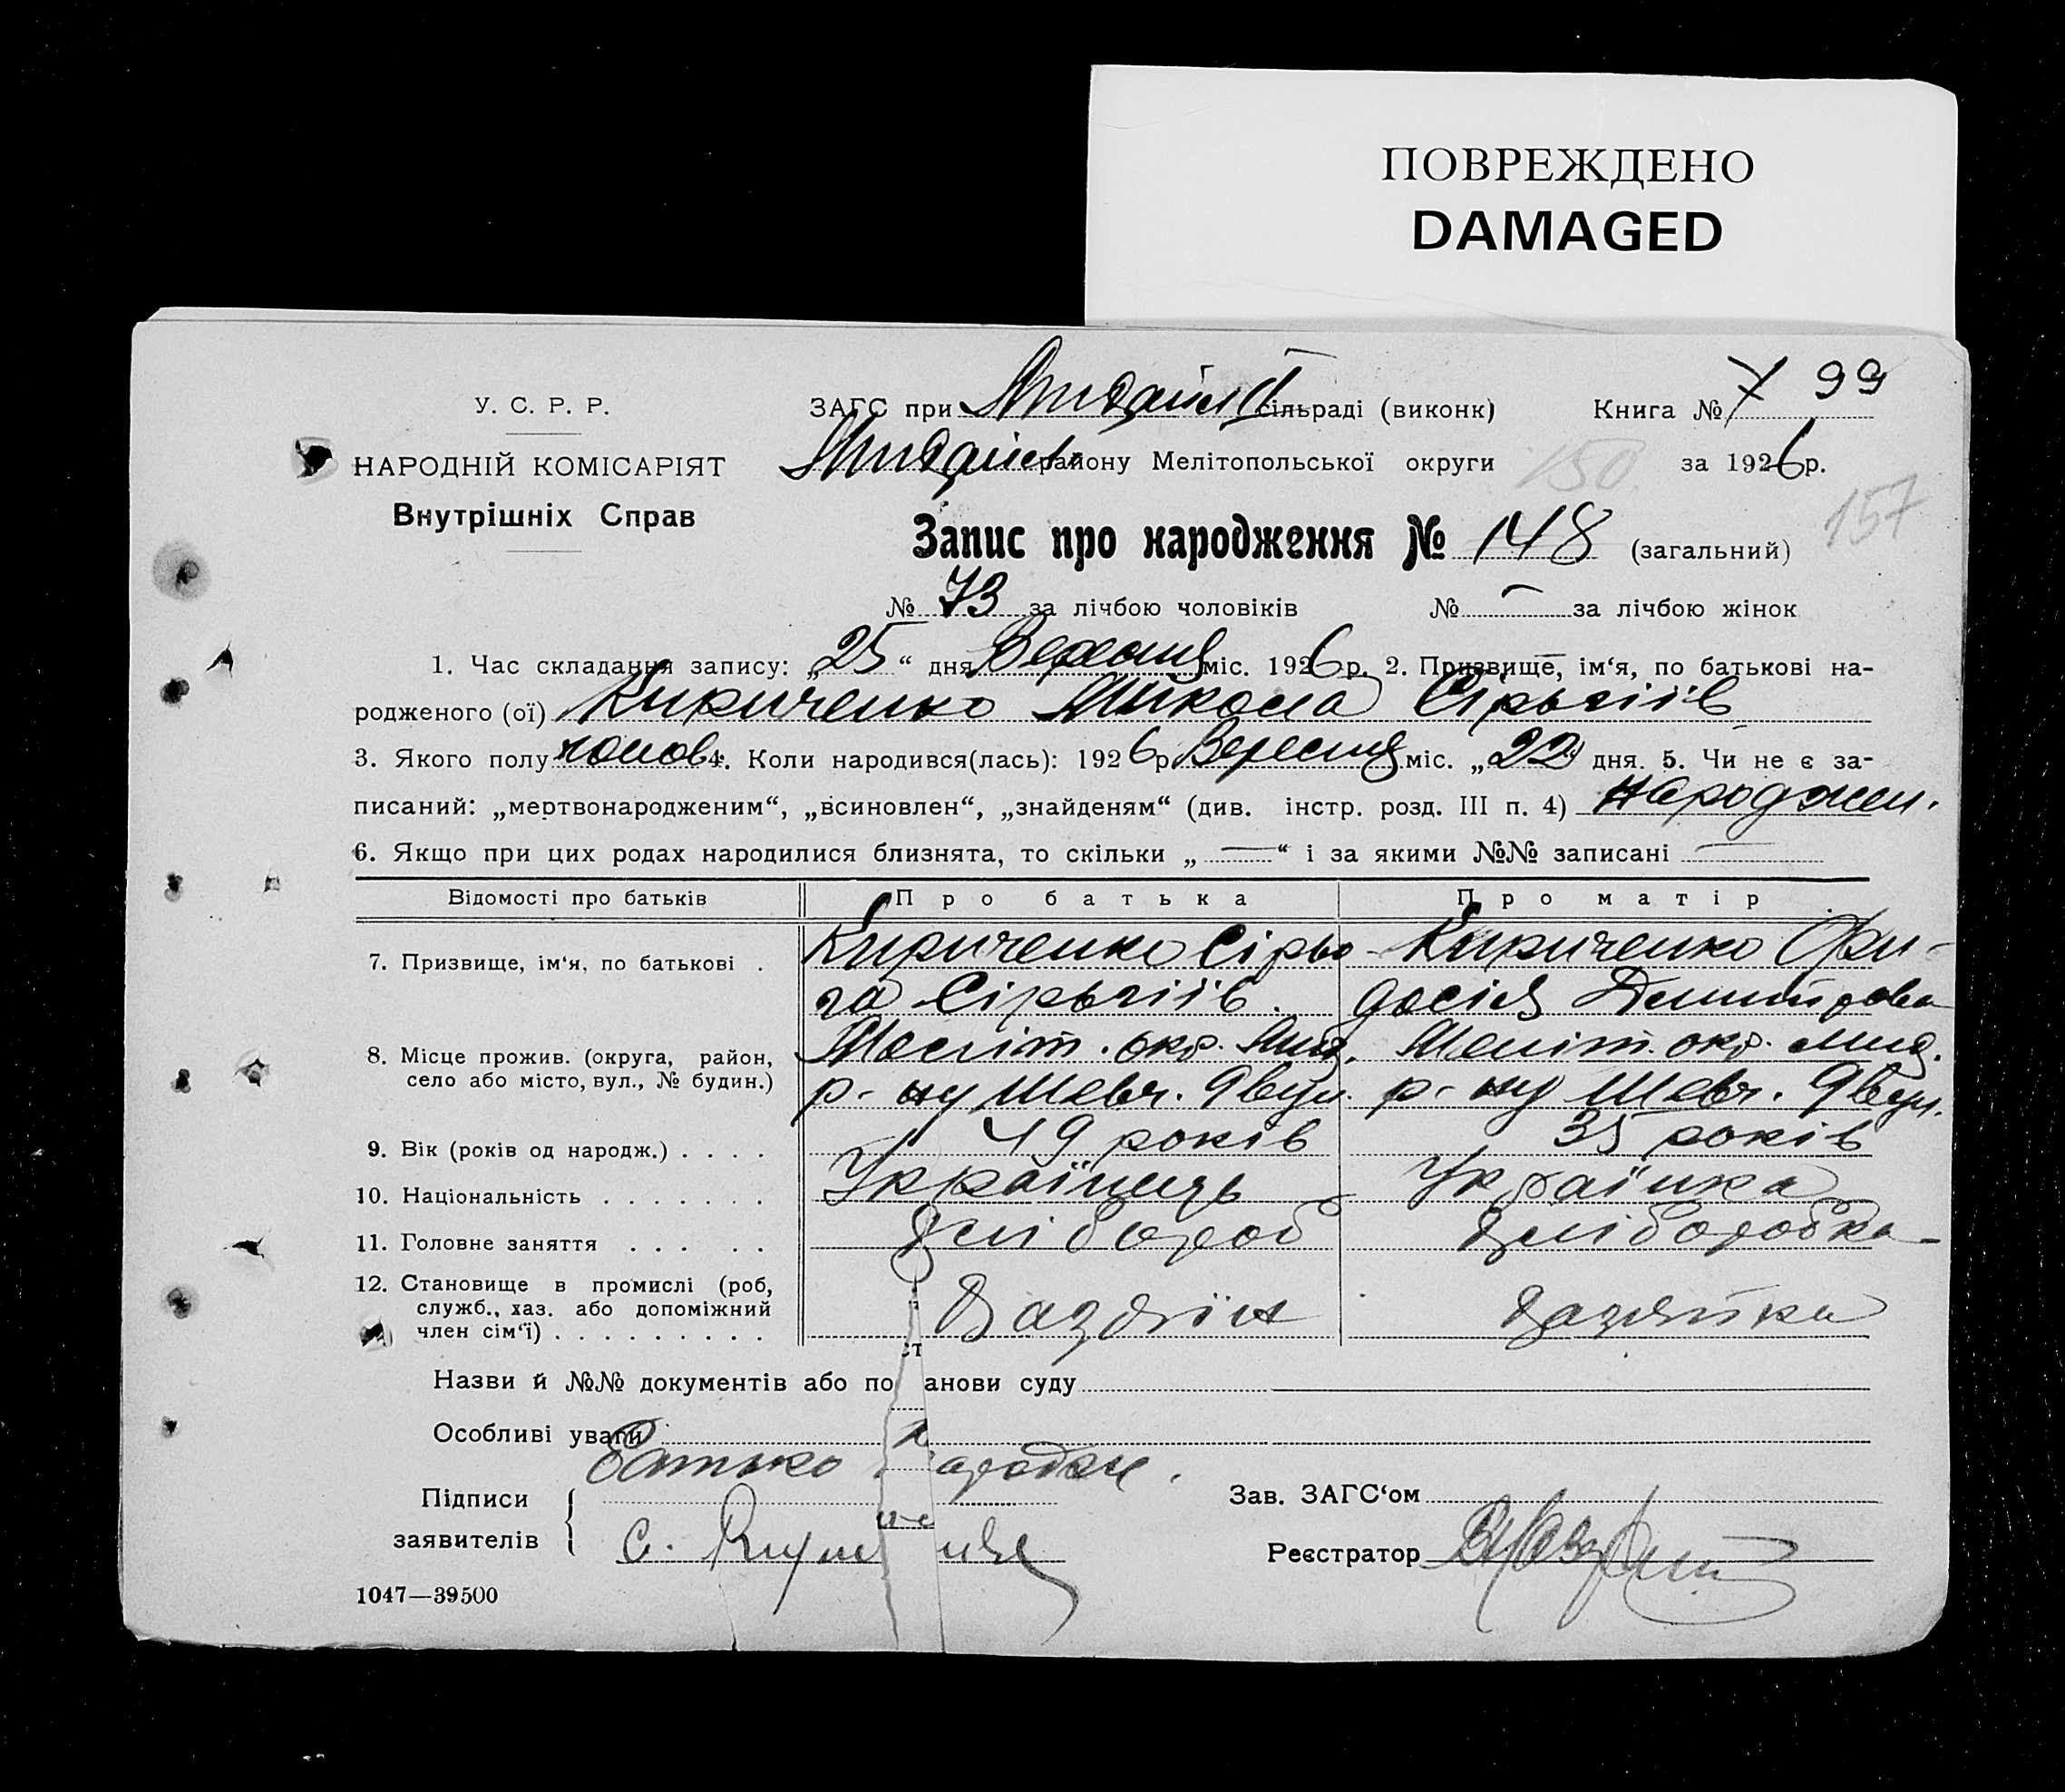 ПОВРЕЖДЕНО
DAMAGED
У. С. Р. Р.
НАРОДНІЙ КОМІСАРІЯТ
Внутрішніх Справ
ЗАГС при сільраді (виконк)
Книга № 7 99
району Мелітопольської округи
150
за 1926 р.
157
Запис про народження № 148 (загальний)
№ 73 за лічбою чоловіків № — за лічбою жінок
1. Час складання запису: „25“ дня Вересня міс. 1926 р. 2. Призвище, ім‘я, по батькові на-
родженого (ої) Кириченко Микола Сірьгіїв
3. Якого полу чолов. 4. Коли народився(лась): 1926 р. Вересня міс. „22“ дня. 5. Чи не є за-
писаний: „мертвонародженим“, „всиновлен“, „знайденям“ (див. інстр. розд. III п. 4) Народжен.
6. Якщо при цих родах народилися близнята, то скільки „—“ і за якими №№ записані —
Відомості про батьків
Про батька
Про матір
7. Призвище, ім‘я, по батькові .
Кириченко Сірьо-
га Сірьгіїв.
Кириченко
Демитрова
8. Місце прожив. (округа, район,
село або місто, вул., № будин.)
Меліт. окр. Мид.
р-ну Шевч. 9 вул.
Меліт. окр. Мид.
р-ну Шевч. 9 вул.
9. Вік (років од народж.) . . . .
49 років
35 років
10. Національність . . . . . . .
Українець
Українка
11. Головне заняття . . . . .
Хлібороб
Хліборобка
12. Становище в промислі (роб,
служб., хаз. або допоміжний
член сім‘ї) . . . . . . . . .
Хазяїн
Хазяйка
Назви й №№ документів або постанови суду
Особливі уваги
Батько народжен.
Підписи
заявителів
С.
Зав. ЗАГС‘ом
Реєстратор
1047—39500